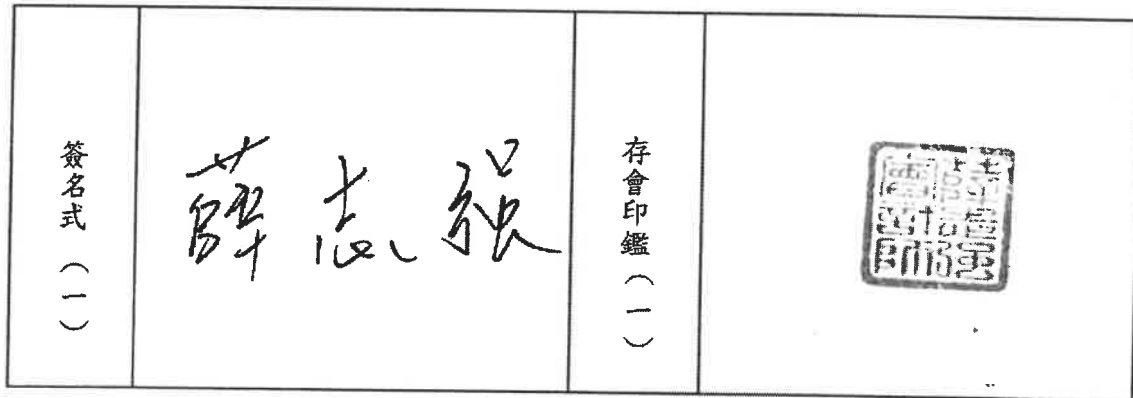 簽名式（一）
薛志強
存會印鑑（一）